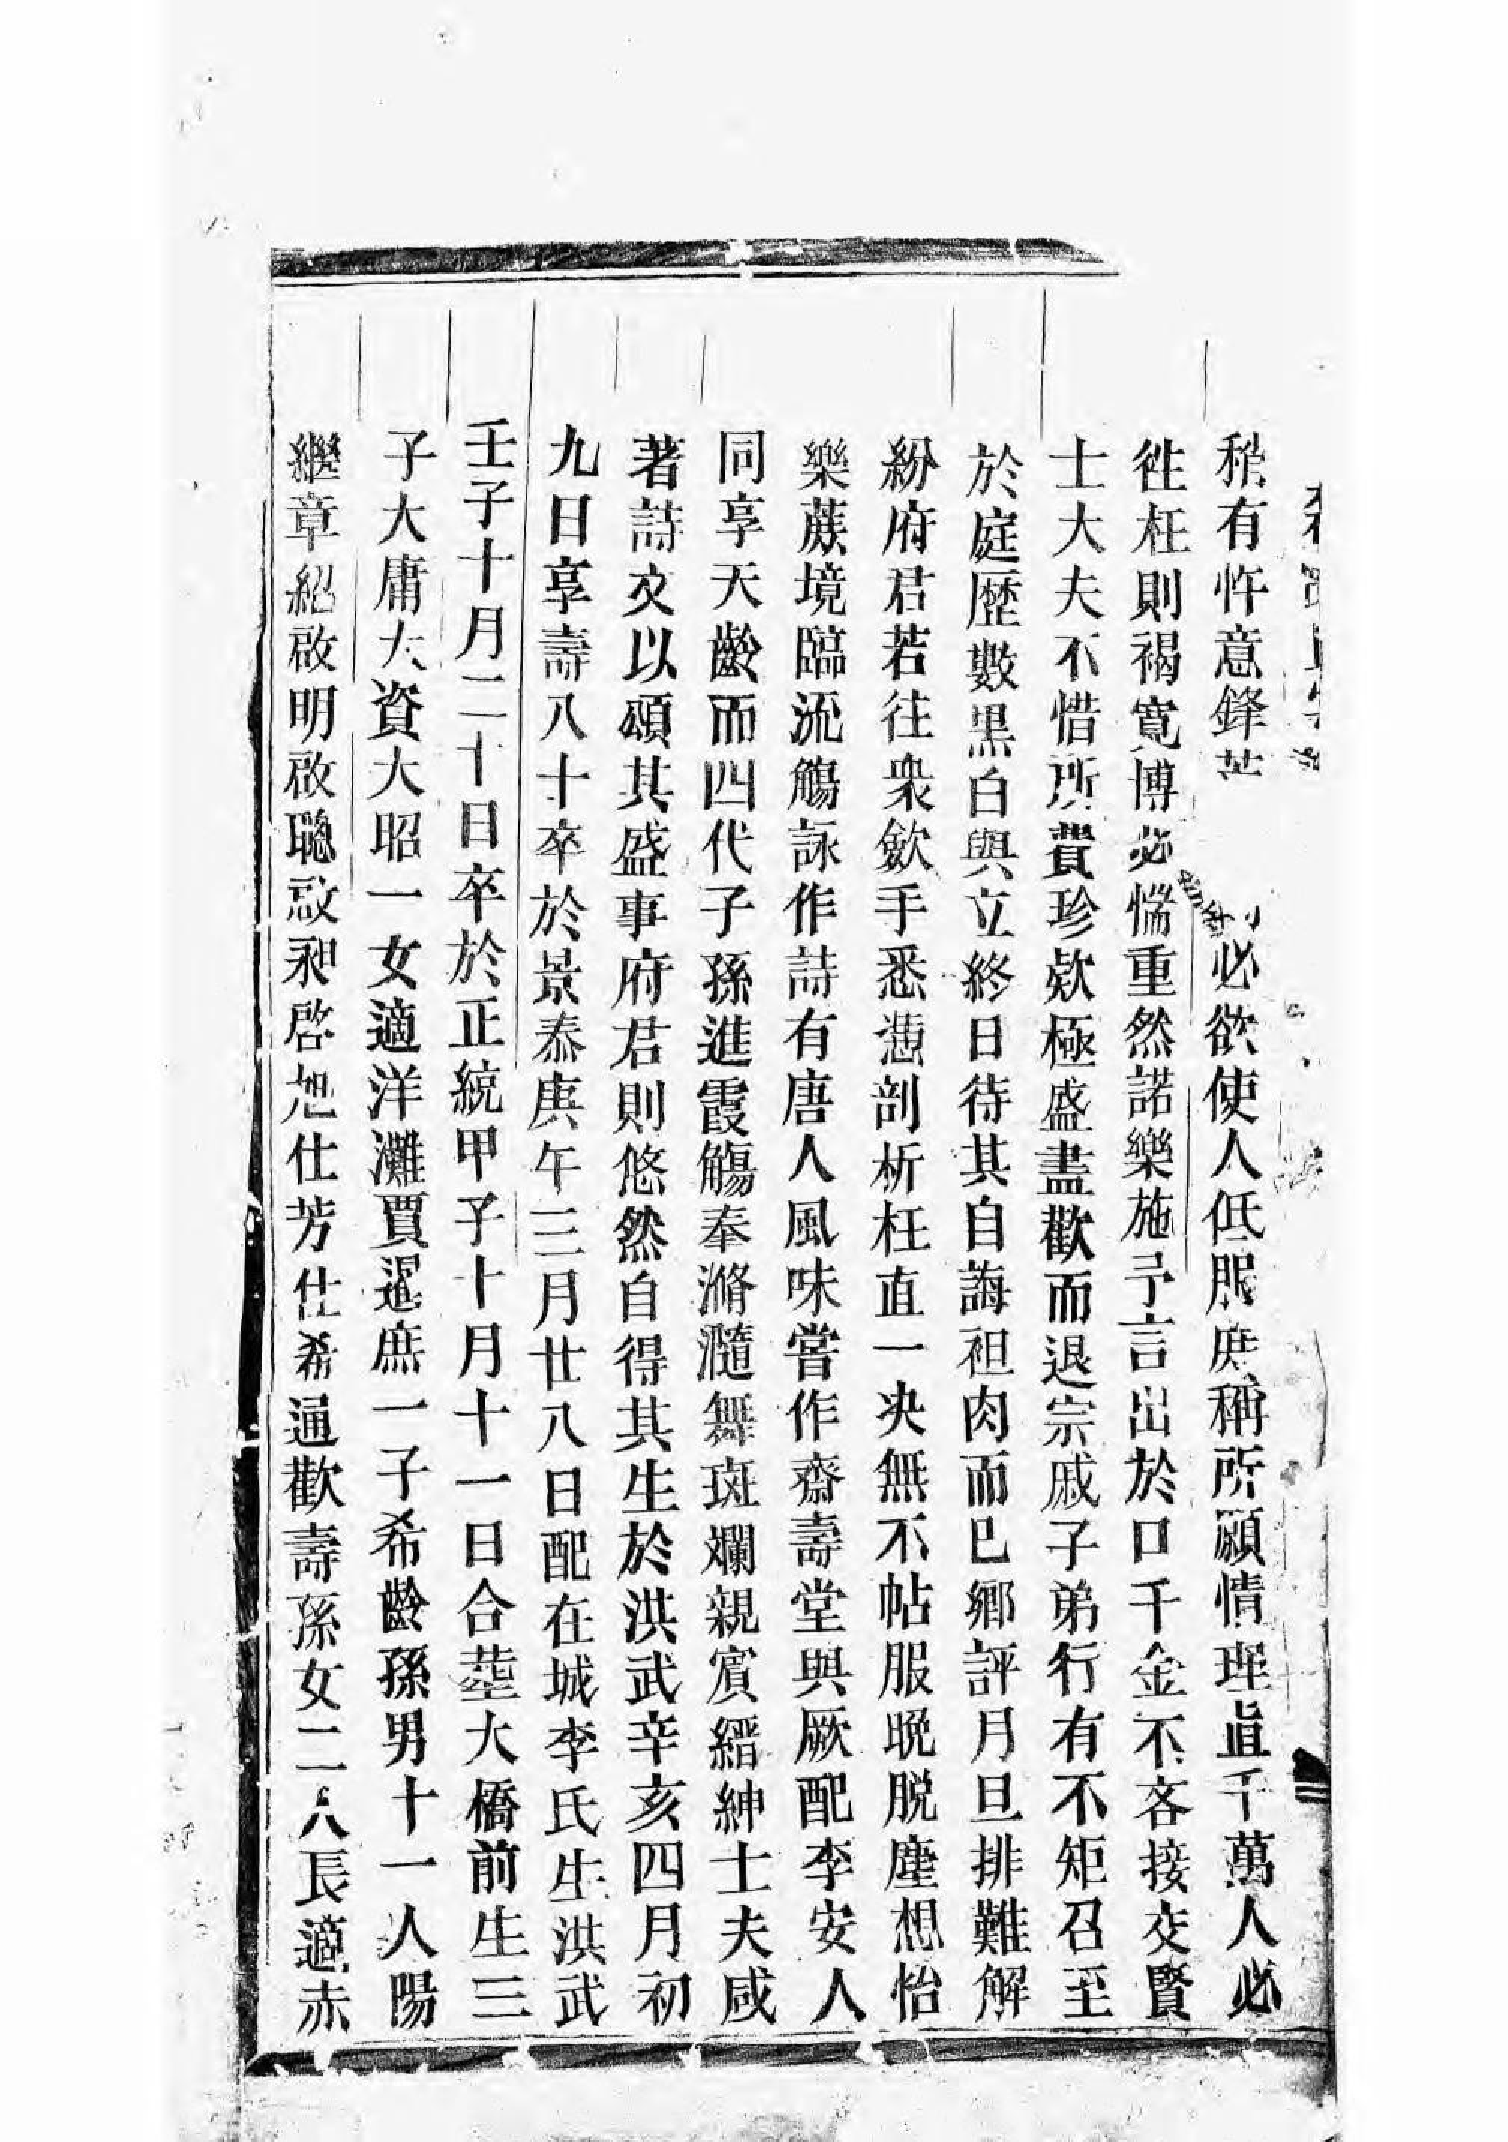 稍有忤意鋒芒必欲使人低服庶稱所願情理直千萬人必
徃枉則褐寬博必惴重然諾樂施予言出於口千金不吝接交賢
士大夫不惜所費珍欵極盛盡歡而退宗戚子弟行有不矩召至
於庭歷數黑白與立終日待其自誨袒肉而已鄉評月旦排難解
紛府君若往衆歛手悉憑剖析枉直一决無不帖服晚脱塵想怡
樂蔗境臨流觴詠作詩有唐人風味嘗作齋壽堂與厥配李安人
同享天齡而四代子孫進霞觴奉滫瀡舞斑斕親賓縉紳士夫咸
著詩文以頌其盛事府君則悠然自得其生於洪武辛亥四月初
九日享壽八十卒於景泰庚午三月廿八日配在城李氏生洪武
壬子十月二十日卒於正統甲子十月十一日合塟大橋前生三
子大庸大資大昭一女適洋灘賈暹庶一子希齡孫男十一人陽
繼章紹啟明啟聰啟昶啓旭仕芳仕希通歡壽孫女二人長適赤